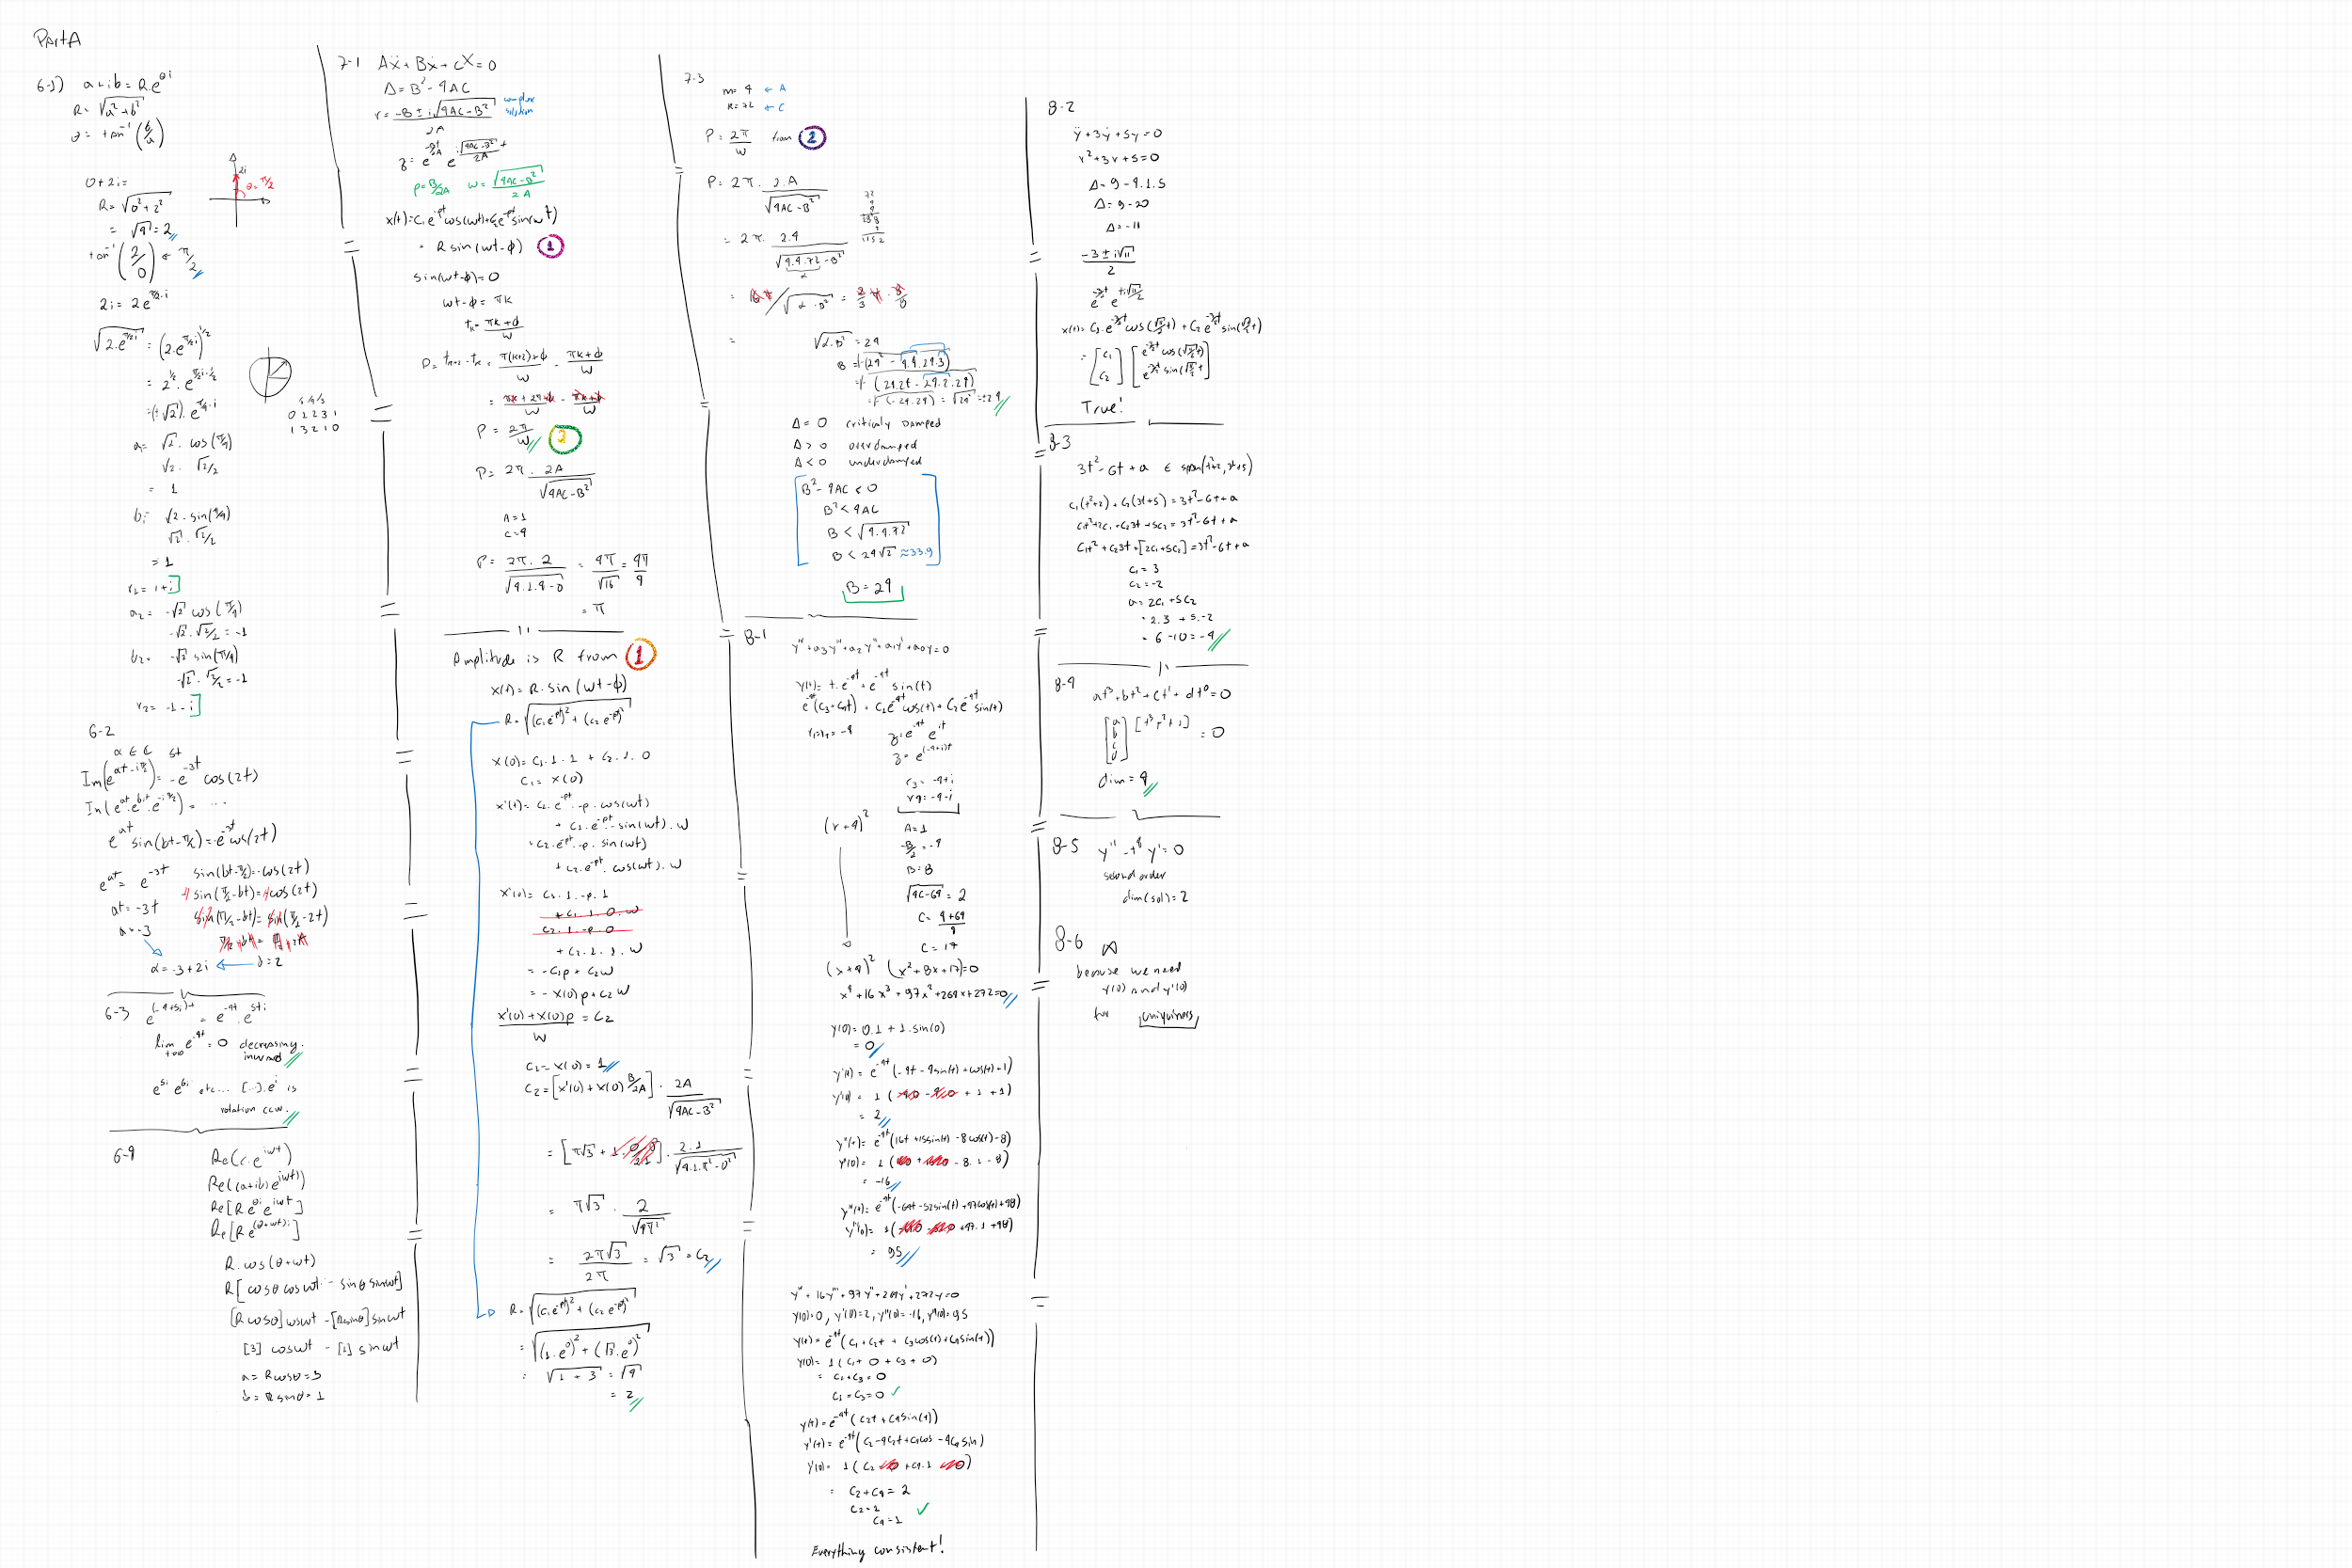 Part A
6-1) a+ib = Re^{θi}
R = √(a²+b²)
θ = tan⁻¹(b/a)
0+2i =
R = √(0²+2²)
= √4 = 2
tan⁻¹(2/0) π/2
2i
θ = π/2
2i = 2e^{π/2·i}
√(2·e^{π/2 i}) = (2·e^{π/2 i})^{1/2}
= 2^{1/2}·e^{π/2 i·1/2}
= (±√2)·e^{π/4·i}
0 1 2 3 1
1 3 2 1 0
a = √2·cos(π/4)
√2·√2/2
= 1
b = √2·sin(π/4)
√2·√2/2
= 1
r₁ = 1+i
a₂ = -√2 cos(π/4)
-√2·√2/2 = -1
b₂ = -√2 sin(π/4)
-√2·√2/2 = -1
r₂ = -1-i
6-2
α ∈ C st
Im(e^{αt-iπ/2}) = -e^{-3t} cos(2t)
Im(e^{at}·e^{bit}·e^{-iπ/2}) = ...
e^{at} sin(bt-π/2) = -e^{-3t} cos(2t)
e^{at} = e^{-3t} sin(bt-π/2) = -cos(2t)
at = -3t sin(π/2-bt) = cos(2t)
a = -3 sin(π/2-bt) = sin(π/2-2t)
α = -3+2i b = 2
6-3 e^{(-4+5i)t} = e^{-4t}·e^{5ti}
lim t→∞ e^{-4t} = 0 decreasing.
inward
e^{5i} e^{6i} etc... [...]·e^{i} is
rotation ccw.
6-4 Re(c·e^{iwt})
Re((a+ib)e^{iwt})
Re[R e^{θi} e^{iwt}]
Re[R e^{(θ+wt)i}]
R·cos(θ+wt)
R[cosθ coswt - sinθ sinwt]
[R cosθ] coswt - [R sinθ] sinwt
[3] coswt - [1] sinwt
a = R cosθ = 3
b = R sinθ = 1
7-1 Aẍ + Bẋ + cx = 0
Δ = B² - 4AC
r = (-B ± i√(4AC-B²))/2A complex solution
z = e^{-Bt/2A} e^{i√(4AC-B²)/2A t}
p = B/2A w = √(4AC-B²)/2A
x(t) = c₁e^{-pt}cos(wt) + c₂e^{-pt}sin(wt)
= R sin(wt-ϕ) 1
sin(wt-ϕ) = 0
wt-ϕ = πk
tₖ = (πk+ϕ)/w
P = tₖ₊₂ - tₖ = (π(k+2)+ϕ)/w - (πk+ϕ)/w
= (πk+2π+ϕ)/w - (πk+ϕ)/w
P = 2π/w 2
P = 2π·2A/√(4AC-B²)
A = 1
c = 4
P = 2π·2/√(4·1·4-0) = 4π/√16 = 4π/4
= π
Amplitude is R from 1
x(t) = R·sin(wt-ϕ)
R = √((c₁e^{-pt})² + (c₂e^{-pt})²)
x(0) = c₁·1·1 + c₂·1·0
c₁ = x(0)
x'(t) = c₁·e^{-pt}·-p·cos(wt)
+ c₁·e^{-pt}·-sin(wt)·w
+ c₂·e^{-pt}·-p·sin(wt)
+ c₂·e^{-pt}·cos(wt)·w
x'(0) = c₁·1·-p·1
+ c₁·1·0·w
c₂·1·-p·0
+ c₂·1·1·w
= -c₁p + c₂w
= -x(0)p + c₂w
(x'(0)+x(0)p)/w = c₂
c₁ = x(0) = 1
c₂ = [x'(0) + x(0) B/2A]·2A/√(4AC-B²)
= [π√3 + 1·0/2·1]·2·1/√(4·1·π²-0²)
= π√3·2/√(4π²)
= 2π√3/2π = √3 = c₂
R = √((c₁e^{-pt})² + (c₂e^{-pt})²)
= √((1·e⁰)² + (√3·e⁰)²)
= √(1+3) = √4
= 2
7-3
m = 4 ← A
k = 72 ← C
P = 2π/w from 2
P = 2π·2·A/√(4AC-B²)
= 2π·2·4/√(4·4·72-B²)
1152
√(α-B²) = 24
B = √-(24²-4·4·24·3)
= √-(24·24-24·2·24)
= √-(-24·24) = √24² = ±24
Δ = 0 criticaly damped
Δ > 0 overdamped
Δ < 0 underdamped
B²-4AC < 0
B² < 4AC
B < √(4·4·72)
B < 24√2 ≈33.9
B = 24
8-1
y'''' + a₃y''' + a₂y'' + a₁y' + a₀y = 0
y(t) = t·e^{-4t} + e^{-4t} sin(t)
e^{-4t}(c₃+c₄t) + c₁e^{-4t}cos(t) + c₂e^{-4t} sin(t)
r₁=r₂ = -4 z = e^{-4t} e^{it}
z = e^{(-4+i)t}
r₃ = -4+i
r₄ = -4-i
(r+4)² A = 1
-B/2 = -4
B = 8
√(4C-64) = 2
C = (4+64)/4
C = 17
(x+4)² (x²+8x+17) = 0
x⁴+16x³+97x²+264x+272=0
y(0) = 0·1 + 1·sin(0)
= 0
y'(t) = e^{-4t}(-4t-4sin(t)+cos(t)+1)
y'(0) = 1(-4·0-4·0+1+1)
= 2
y''(t) = e^{-4t}(16t+15sin(t)-8cos(t)-8)
y''(0) = 1( -8·1-8)
= -16
y'''(t) = e^{-4t}(-64t-52sin(t)+47cos(t)+48)
y'''(0) = 1( +47·1+48)
= 95
y''''+16y'''+97y''+264y'+272y=0
y(0)=0, y'(0)=2, y''(0)=-16, y'''(0)=95
y(t) = e^{-4t}(c₁+c₂t + c₃cos(t)+c₄sin(t))
y(0) = 1(c₁+0+c₃+0)
= c₁+c₃ = 0
c₁=c₃=0 ✓
y(t) = e^{-4t}(c₂t+c₄sin(t))
y'(t) = e^{-4t}(c₂-4c₂t+c₄cos-4c₄sin)
y'(0) = 1(c₂ +c₄·1 )
= c₂+c₄ = 2
c₂=1 ✓
c₄=1
Everything consistent!
8-2
ÿ+3ẏ+5y=0
r²+3r+5=0
Δ=9-4·1·5
Δ=9-20
Δ=-11
(-3±i√11)/2
e^{-3/2t} e^{±i√11/2 t}
x(t) = c₁·e^{-3/2t}cos(√11/2 t) + c₂e^{-3/2t}sin(√11/2 t)
= [c₁ c₂] [e^{-3/2t}cos(√11/2 t) e^{-3/2t}sin(√11/2 t)]
True!
8-3
3t²-6t+a ∈ span(t²+2, 3t+5)
c₁(t²+2)+c₂(3t+5)=3t²-6t+a
c₁t²+2c₁+c₂3t+5c₂=3t²-6t+a
c₁t²+c₂3t+[2c₁+5c₂]=3t²-6t+a
c₁=3
c₂=-2
a=2c₁+5c₂
=2·3+5·-2
=6-10=-4
8-4 at³+bt²+ct¹+dt⁰=0
[a b c d] [t³ t² t 1] = 0
dim = 4
8-5 y''-t⁸y'=0
second order
dim(sol)=2
8-6 ∞
because we need
y(0) and y'(0)
for uniquiness